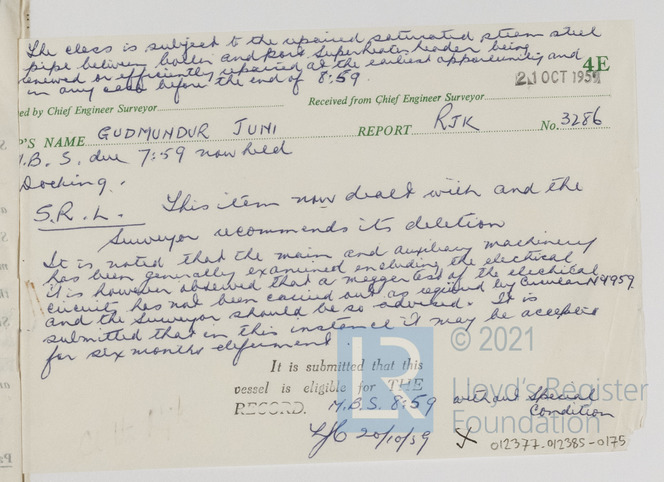 The class is subject to the repaired saturated steam steel
pipe between boiler and Port Superheater header being
renewed or efficiently repaired at the earliest opportunity and
in any case before the end of 8:59.
4E
21 OCT 1959
ed by Chief Engineer Surveyor
Received from Chief Engineer Surveyor
P'S NAME GUDMUNDUR JUNI REPORT RJK No. 3286
M.B.S. due 7:59 now held
Docking.
S.R.L. This item now dealt with and the
Surveyor recommends its deletion
It is noted that the main and auxiliary machinery
has been generally examined including the electrical
it is however observed that a megger test of the electrical
circuits has not been carried out as required by Circular No 1959
and the Surveyor should be so advised. It is
submitted that in this instance it may be accepted
for six months deferment.
It is submitted that this
vessel is eligible for THE
RECORD. M.B.S. 8:59 without Special
Condition
20/10/59
012377-012385-0175
LR
© 2021
Lloyd's Register
Foundation